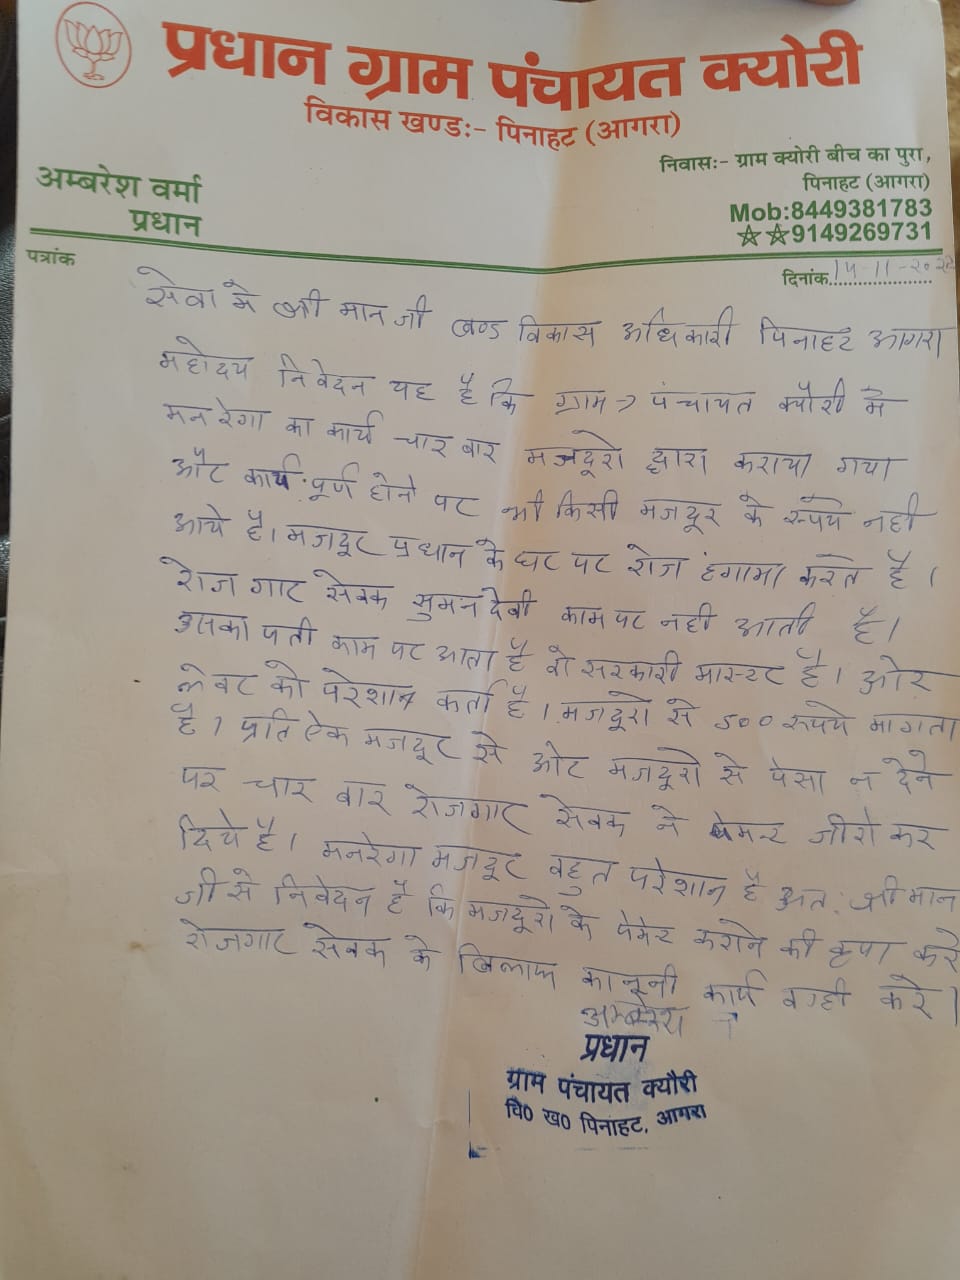 प्रधान ग्राम पंचायत क्योरी
विकास खण्डः- पिनाहट (आगरा)
निवासः- ग्राम क्योरी बीच का पुरा,
पिनाहट (आगरा)
अम्बरेश वर्मा
प्रधान
Mob:8449381783
☆☆9149269731
पत्रांक
दिनांक 14-11-20
सेवा मे श्री मान जी खण्ड विकास अधिकारी पिनाहट आगरा
महोदय निवेदन यह है कि ग्राम-> पंचायत क्यौरी मे
मनरेगा का कार्य चार बार मजदूरो द्वारा कराया गया
और कार्य पूर्ण होने पर भी किसी मजदूर के रूपये नही
आये है। मजदूर प्रधान के घर पर रोज हंगामा करते है।
रोजगार सेवक सुमन देवी काम पर नही आती है।
उसका पती काम पर आता है वो सरकारी मास्टर है। ओर
लेवर को परेशान कर्ता है। मजदूरो से 500 रूपये मागता
है। प्रति ऐक मजदूर से ओर मजदूरो से पेसा न देने
पर चार बार रोजगार सेवक ने पेमन्ट जीरो कर
दिये है। मनरेगा मजदूर बहुत परेशान है अतः श्री मान
जी से निवेदन है कि मजदूरो के पेमेंट कराने की कृपा करे
रोजगार सेवक के खिलाफ कानूनी कार्य वाही करे।
अम्बरेश
प्रधान
ग्राम पंचायत क्यौरी
वि0 ख0 पिनाहट, आगरा